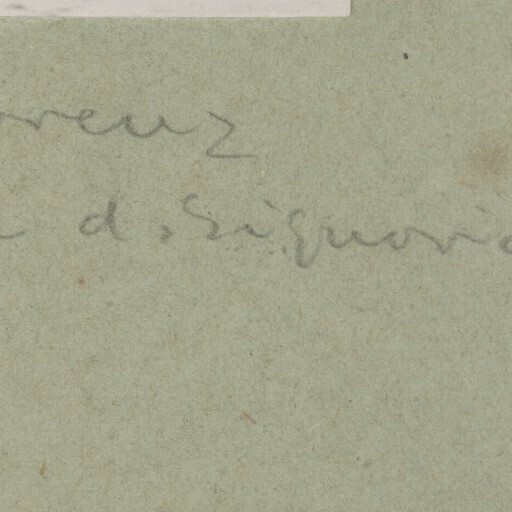 orenz
d. Signoria